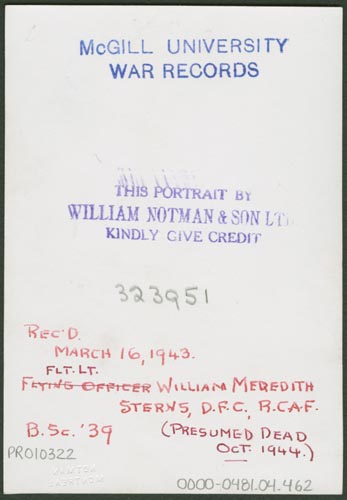 McGILL UNIVERSITY
WAR RECORDS
THIS PORTRAIT BY
WILLIAM NOTMAN & SON LTD
KINDLY GIVE CREDIT
323951
REC'D.
MARCH 16, 1943.
FLT. LT.
FLYING OFFICER WILLIAM MEREDITH
STERNS, D.F.C., R.C.A.F.
B.Sc. '39
(PRESUMED DEAD
OCT. 1944.)
PR010322
0000-0481.04.462